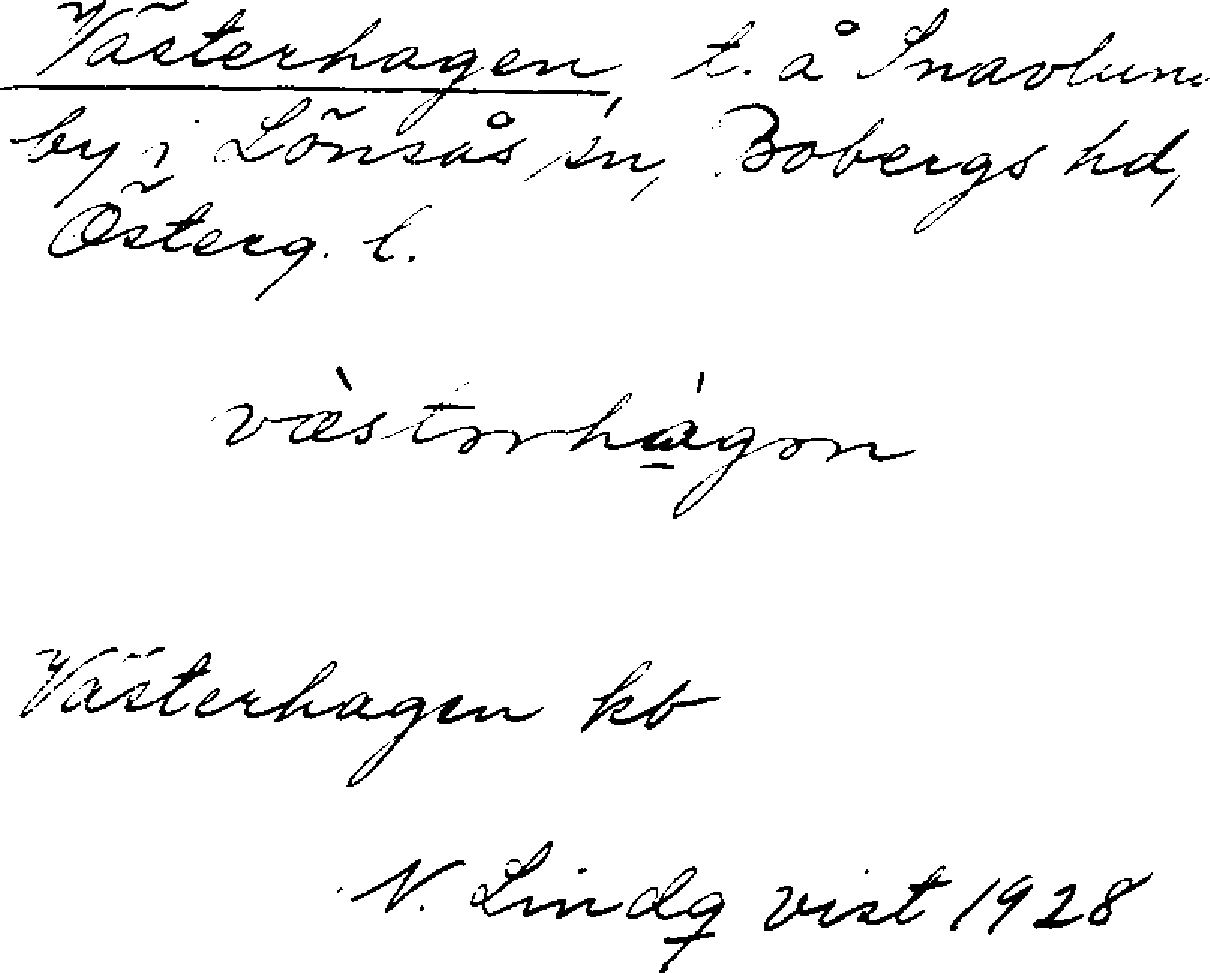 Västerhagen, t. å Snavlun
by i Lönsås sn, Bobergs hd,
Österg. l.
væ̀stərhágən
Västerhagen kb
N. Lindqvist 1928